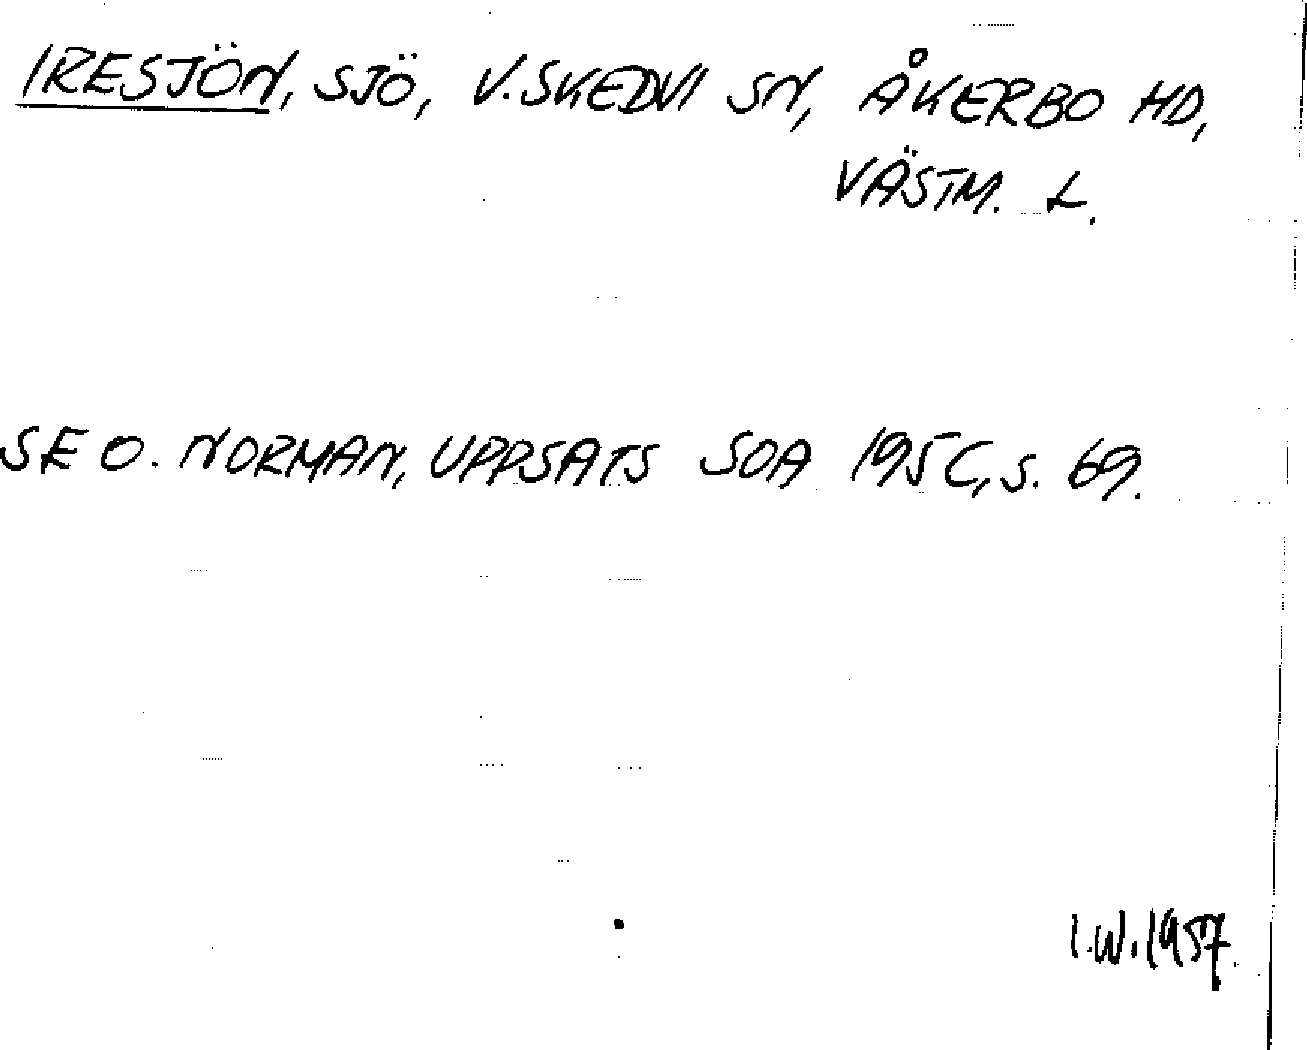 IRESJÖN, SJÖ, V. SKEDVI SN, ÅKERBO HD,
VÄSTM. L.
SE O. NORMAN, UPPSATS SOA 195C, S. 69.
I.W. 1957.